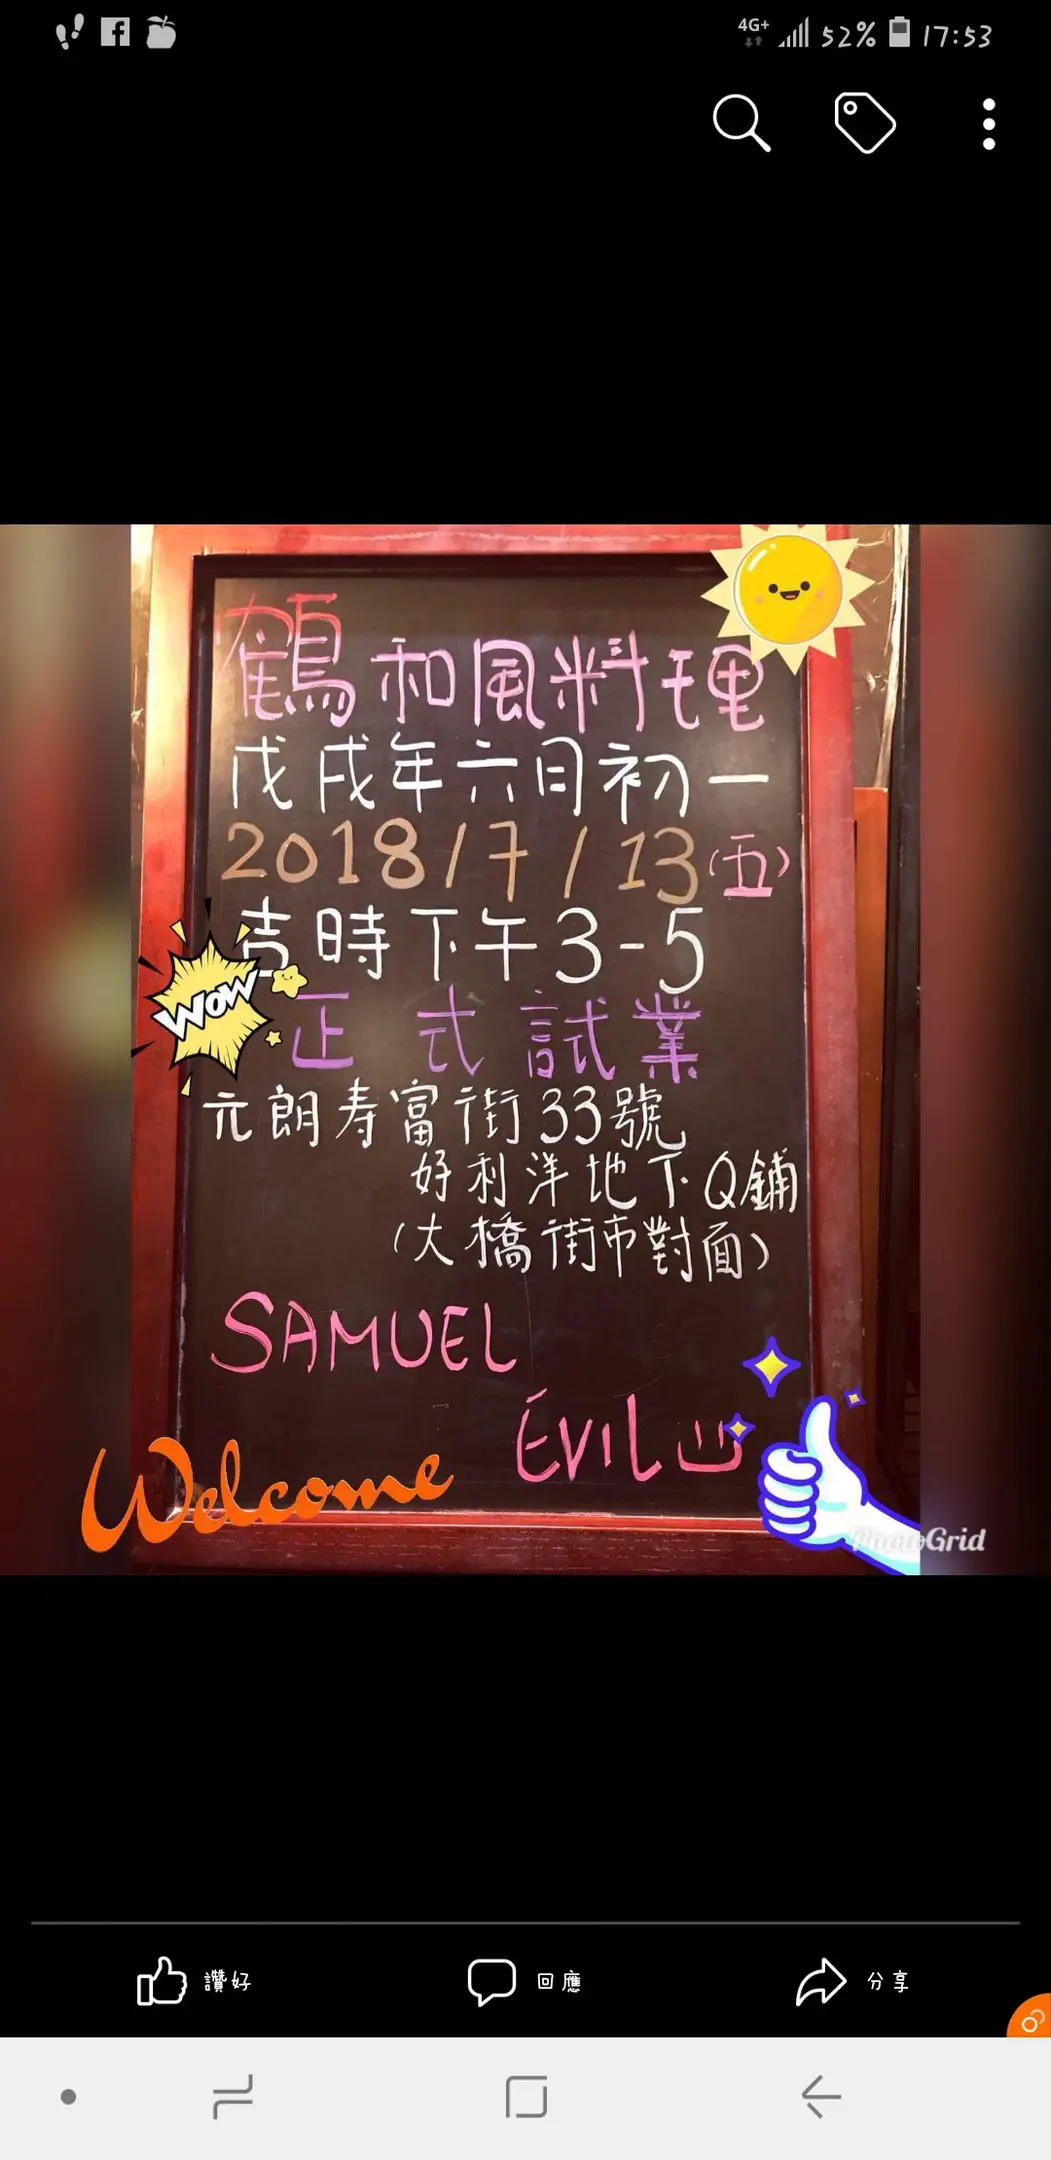 4G+ 52% 17:53
鶴和風料理
戊戌年六月初一
2018/7/13(五)
吉時下午3-5
WOW
正式試業
元朗寿富街33號
好利洋地下Q鋪
(大橋街市對面)
SAMUEL
EVIL
Welcome
PhotoGrid
讚好 回應 分享